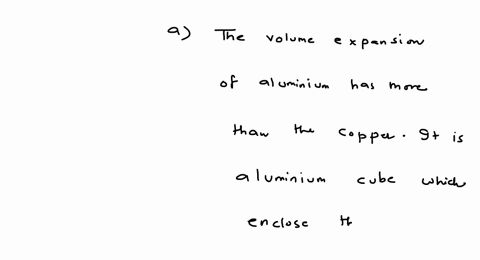 a) The volume expansion
of aluminium has more
than the copper. It is
aluminium cube which
enclose th